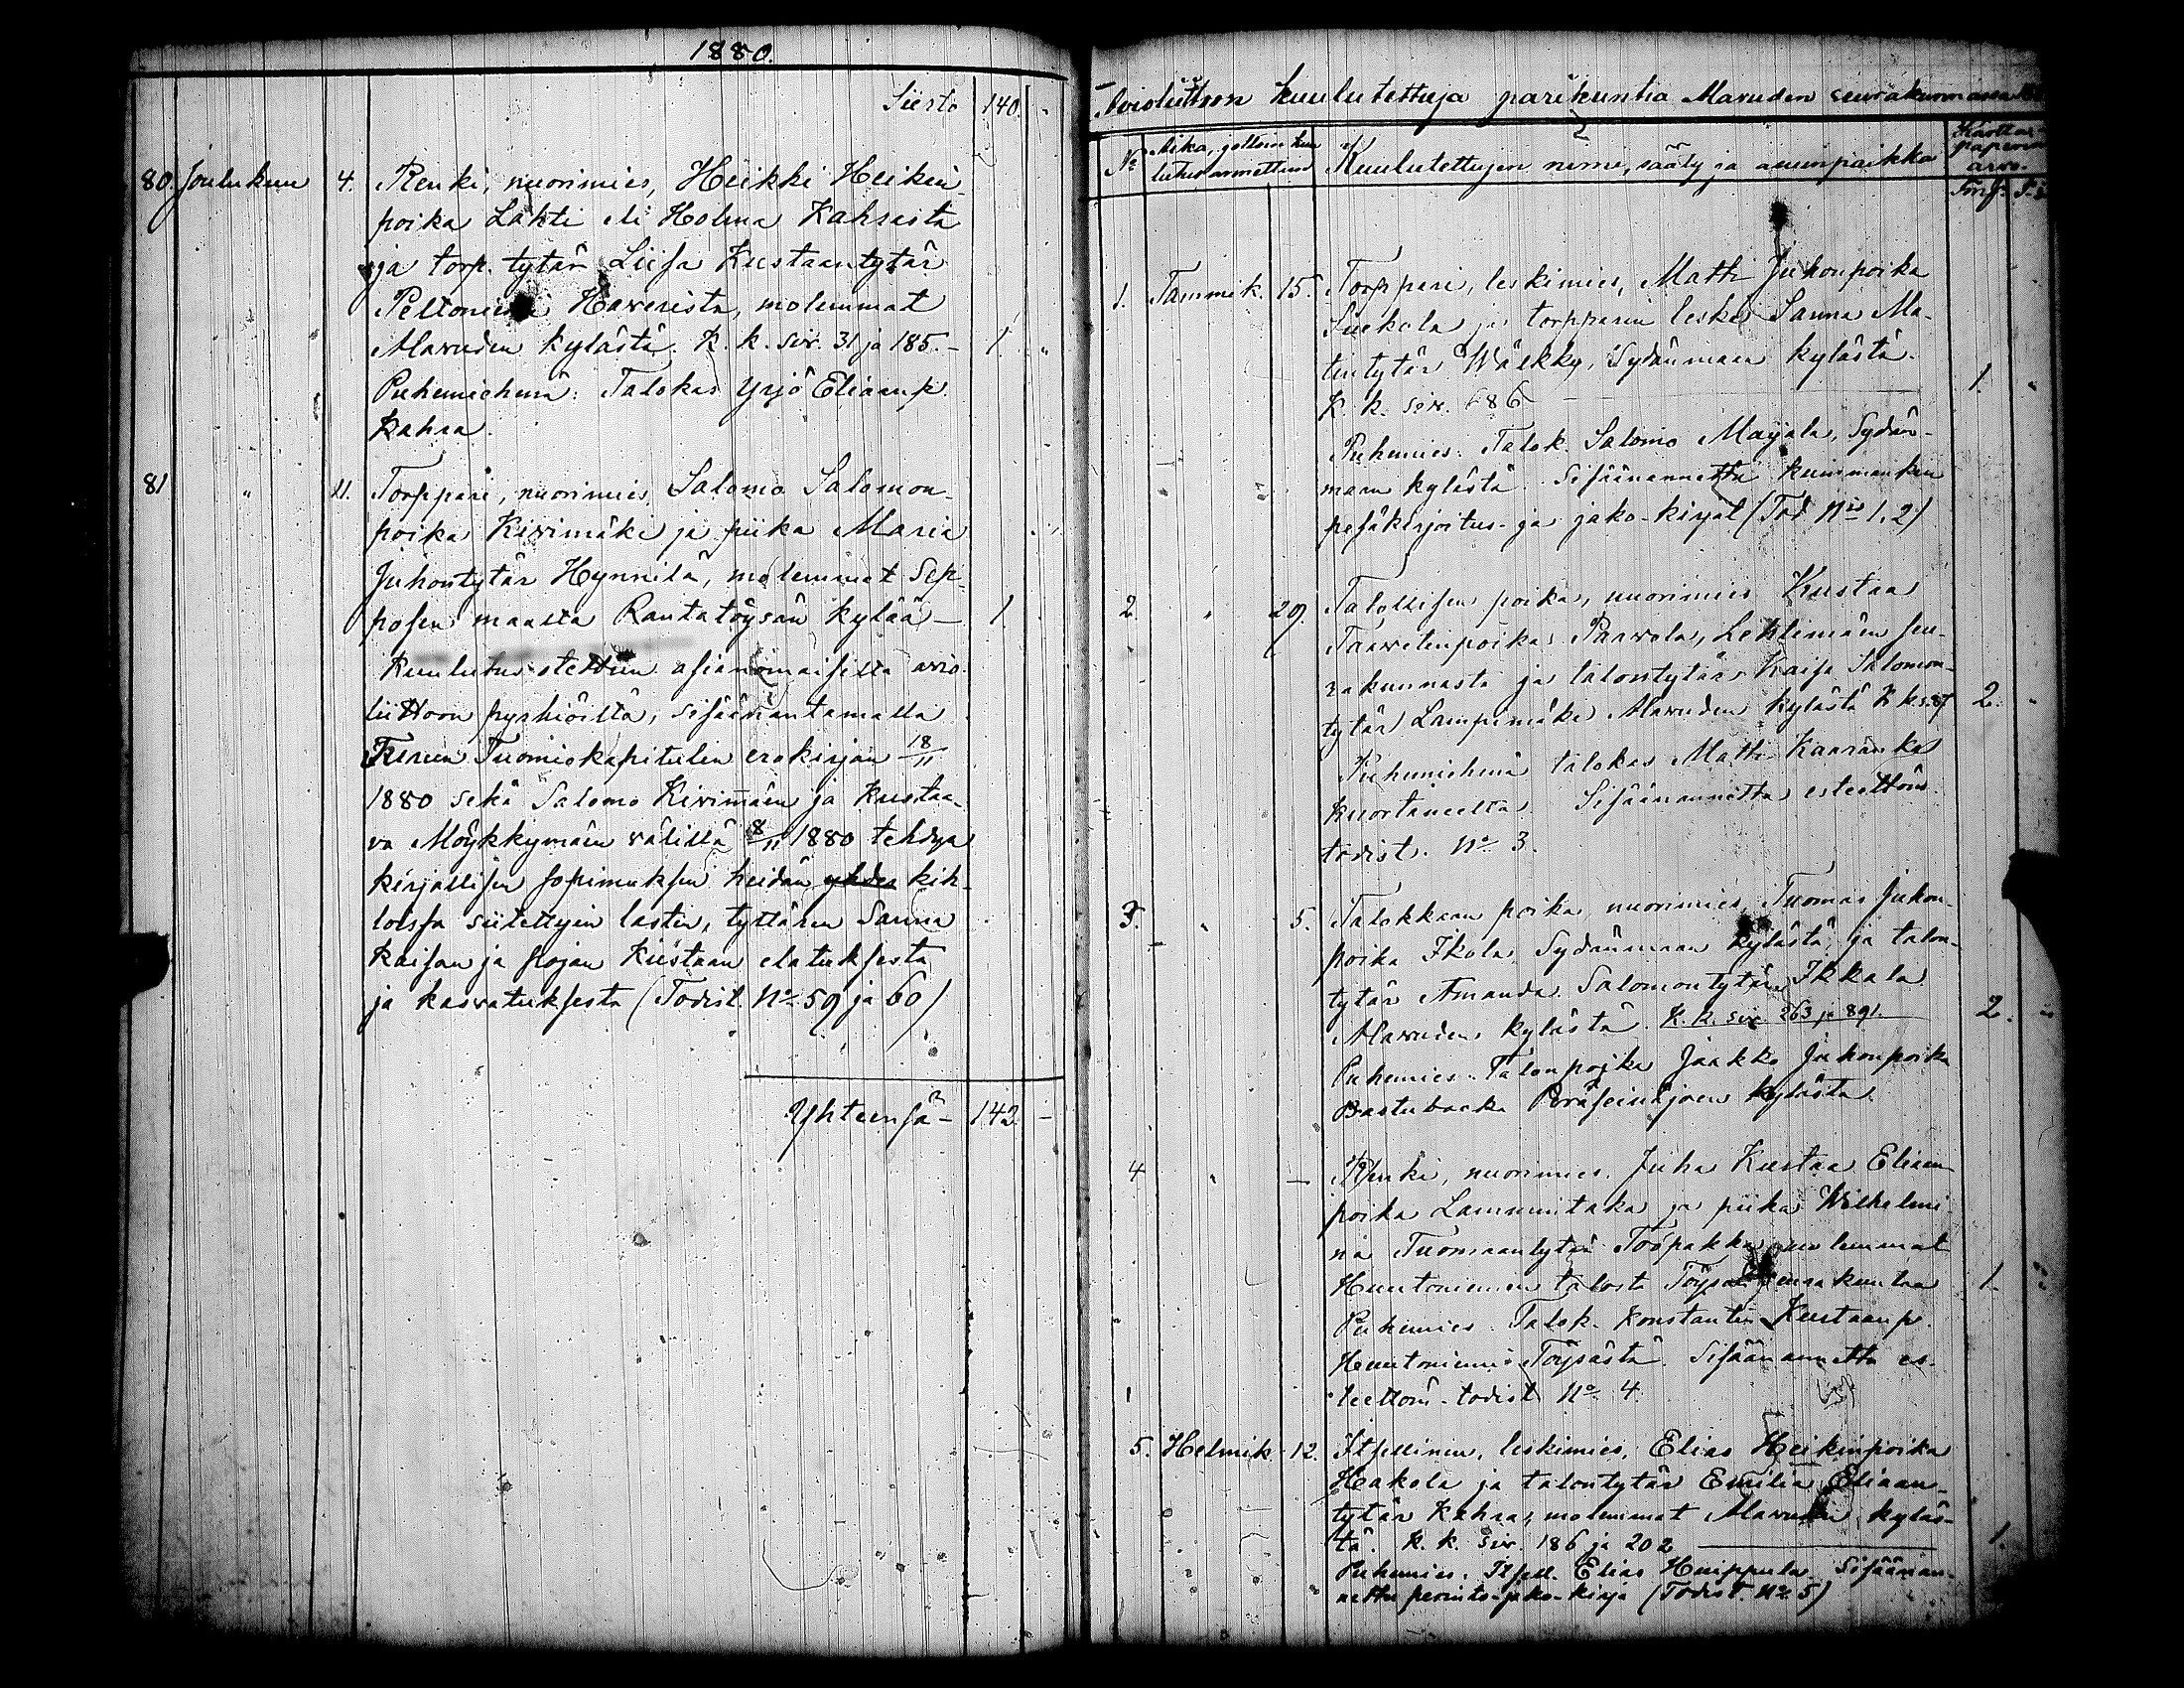 1880.
Siirto 140.
80. Joulukuu 4. Renki, nuorimies, Heikki Heikin-
poika Lahti eli Holma Kahrasta
ja torp. tytär Liisa Kustaantytär
Peltoniemi Hawerista, molemmat
Alavuden kylästä. K. k. siv. 31 ja 185. – 1. "
Puhemiehenä: Talokas Yrjö Eliaanp.
Kahra.
81 " 11. Torppari, nuorimies Salomo Salomon-
poika Kivimäki ja piika Maria
Juhontytär Hynnilä, molemmat Sep-
posen maalta Rantatöysän kylää – 1.
Kuulutus otettiin asianomaisilta avio-
liittoon pyrkiöiltä, sisäänantamalla
Turun Tuomiokapitulin erokirjan 18/11
1880 sekä Salomo Kivimäen ja Kustaa-
va Möykkymäen välillä 8/11 1880 tehdyn
kirjallisen sopimuksen heidän yhdes kih-
loissa siitettyin lasten, tyttären Sanna
Kaisan ja pojan Kustaan elatuksesta
ja kasvatuksesta (Todist. No 59 ja 60)
Yhteensä – 142 –
Avioliittoon kuulutettuja parikuntia Alavuden seurakunnassa
No Aika, jolloin kuu- Kuulutettujen nimi, sääty ja asuinpaikka Kartta-
lutus annettiin paperin
arvo.
Smf. P:
1. Tammik. 15. Torppari, leskimies, Matti Juhonpoika
Suokola ja torpparin leski Sanna Ma-
tintytär Wälkky, Sydänmaan kylästä.
K. k. siv. 686 1. "
Puhemies: Talok. Salomo Mayala, Sydän-
maan kylästä. Sisäänannettu kummankin
pesäkirjoitus- ja jako-kirjat (Tod Nis 1, 2)
2. " 29. Talollisen poika, nuorimies Kustaa
Taavetinpoika Parvola, Lehtimäen seu-
rakunnasta ja talontytär Kaisa Salomon-
tytär Lampimäki Alavuden kylästä 2. "
Puhemiehenä talokas Matti Kaaranka
Kuortaneelta. Sisäänannettu esteettöm.
todist. No 3.
3. " 5. Talokkaan poika, nuorimies, Tuomas Juhon-
poika Ikola Sydänmaan kylästä, ja talon-
tytär Amanda Salomontytär Ikkala
Alavuden kylästä. K. k. siv. 263 ja 891. 2. "
Puhemies: Talonpoika Jaakko Juhonpoika
Bastubacka Peräseinäjoen kylästä.
4 " – Renki, nuorimies. Juha Kustaa Eliaan-
poika Lammintaka ja piika Wilhelmi-
na Tuomaantytär Toopakka molemmat
Huutoniemen talosta Töysän seurakuntaa 1.
Puhemies: Talok. Konstantin Kustaanp.
Huutoniemi Töysästä. Sisäänannettu es-
teettöm. todist No 4.
5. Helmik. 12. Itsellinen, leskimies, Elias Heikinpoika
Hakola ja talontytär Emilia Eliaan-
tytär Kahra, molemmat Alavuden kyläs-
tä. K. k. siv. 186 ja 202 1.
Puhemies. Itsell. Elias Huippula. Sisäänan-
nettu perintö-jako-kirja (Todist. No 5)